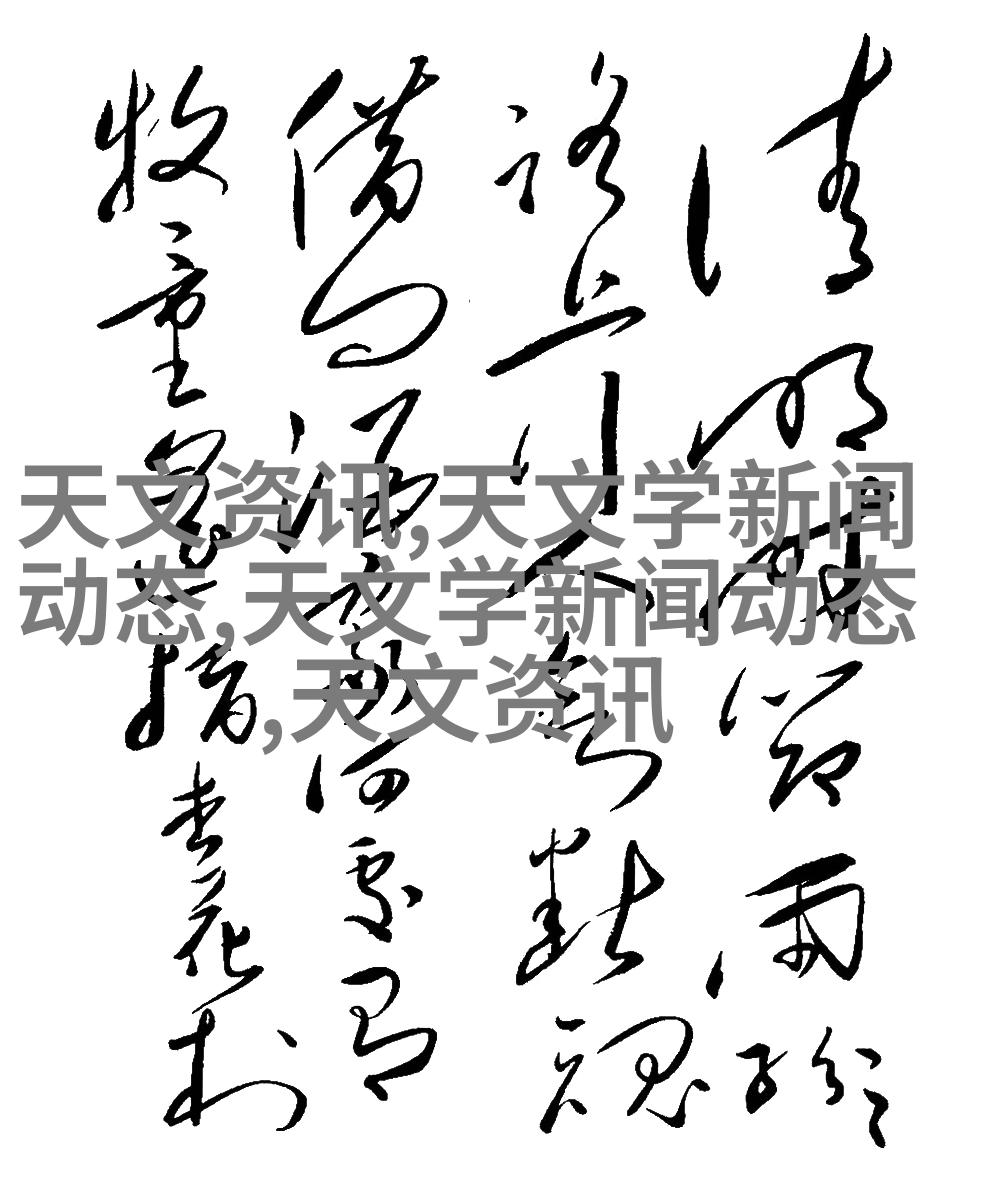 清明時節雨紛紛
路上行人欲斷魂
借問酒家何處有
牧童遙指杏花村
天文资讯,天文学新闻
动态,天文学新闻动态
,天文资讯